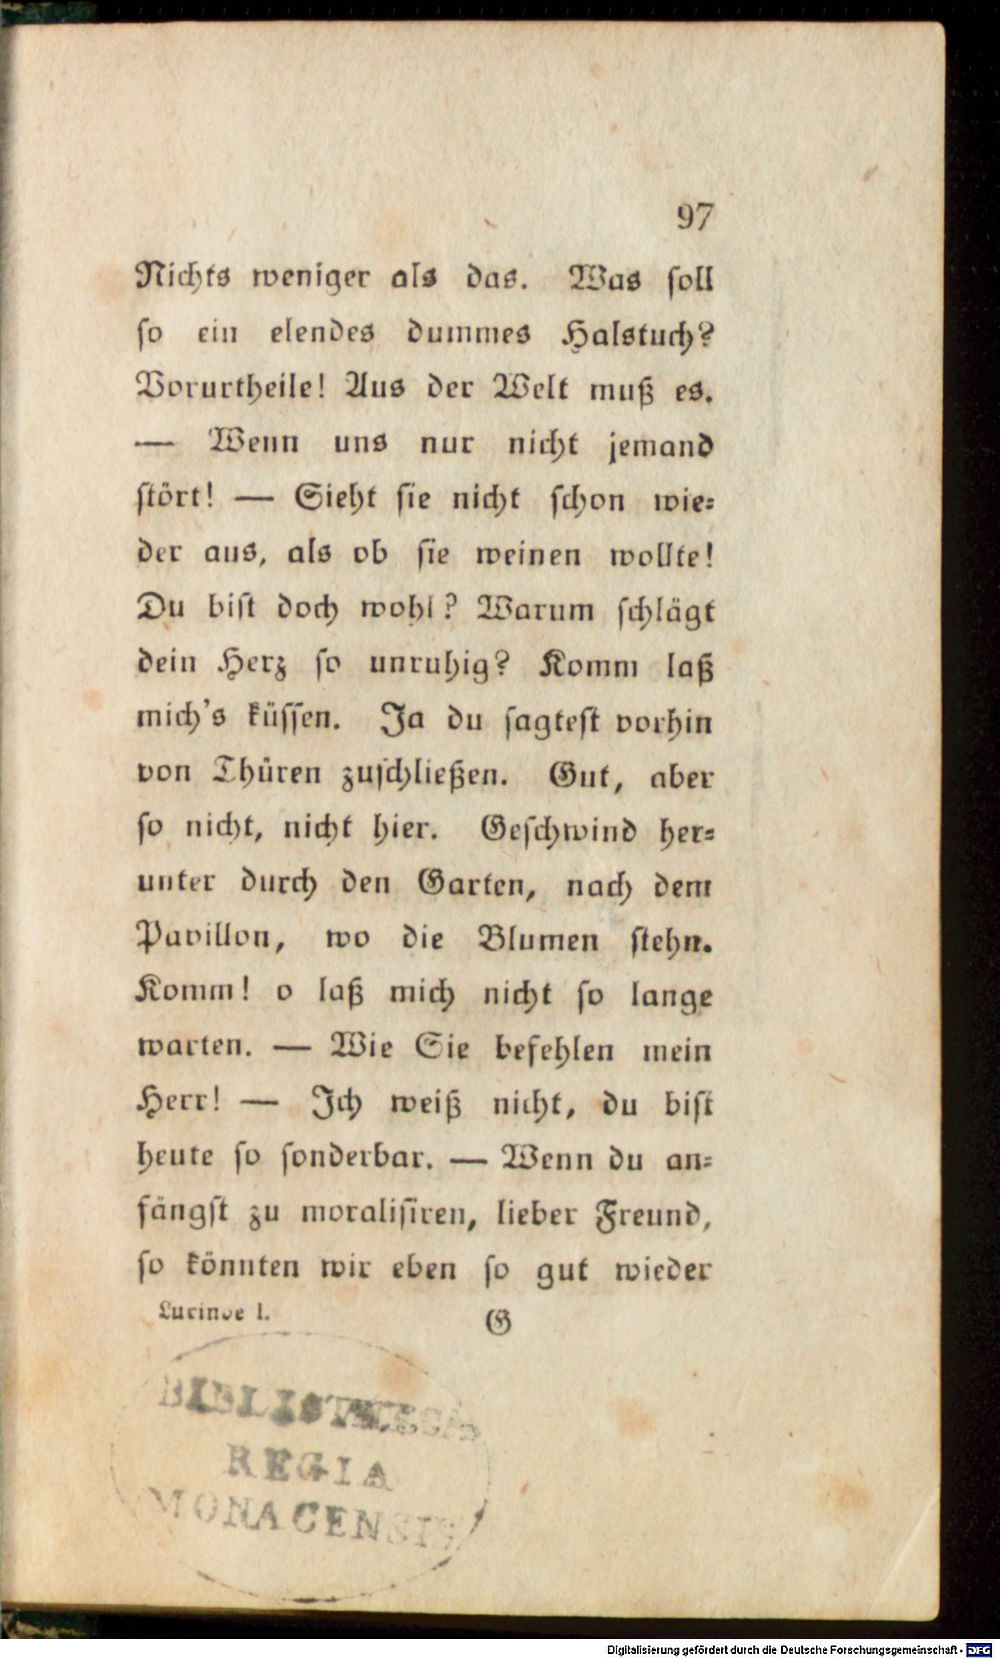 97
Nichts weniger als das. Was ſoll
ſo ein elendes dummes Halstuch?
Vorurtheile! Aus der Welt muß es.
— Wenn uns nur nicht jemand
ſtört! — Sieht ſie nicht ſchon wie⸗
der aus, als ob ſie weinen wollte!
Du biſt doch wohl? Warum ſchlägt
dein Herz ſo unruhig? Komm laß
mich's küſſen. Ja du ſagteſt vorhin
von Thüren zuſchließen. Gut, aber
ſo nicht, nicht hier. Geſchwind her⸗
unter durch den Garten, nach dem
Pavillon, wo die Blumen ſtehn.
Komm! o laß mich nicht ſo lange
warten. — Wie Sie befehlen mein
Herr! — Ich weiß nicht, du biſt
heute ſo ſonderbar. — Wenn du an⸗
fängſt zu moraliſiren, lieber Freund,
ſo könnten wir eben ſo gut wieder
Lucinde I. G
BIBLIOTHECA
REGIA
MONACENSIS
Digitalisierung gefördert durch die Deutsche Forschungsgemeinschaft - DFG